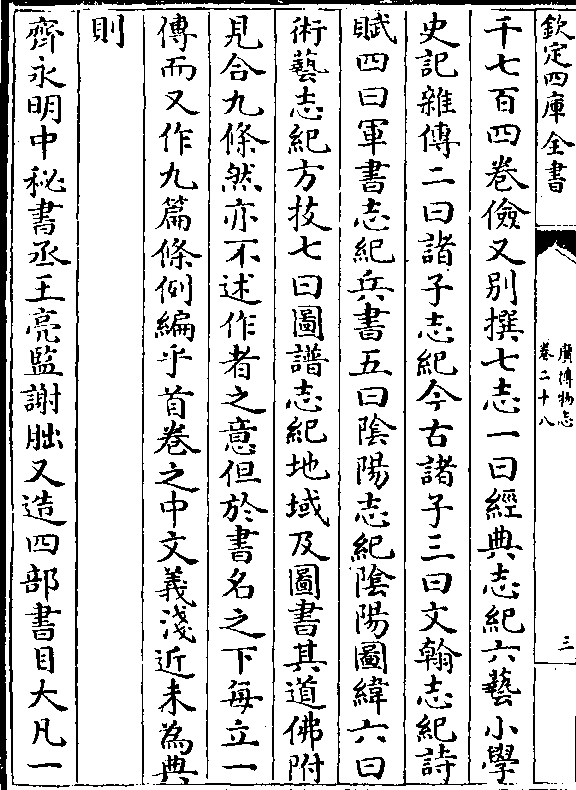 欽定四庫全書
廣博物志
卷二十八
三
千七百四卷儉又別撰七志一曰經典志紀六藝小學
史記雜傳二曰諸子志紀今古諸子三曰文翰志紀詩
賦四曰軍書志紀兵書五曰陰陽志紀陰陽圖緯六曰
術藝志紀方技七曰圖譜志紀地域及圖書其道佛附
見合九條然亦不述作者之意但於書名之下每立一
傳而又作九篇條例編乎首卷之中文義淺近未為典
則
齊永明中秘書丞王亮監謝朏又造四部書目大凡一